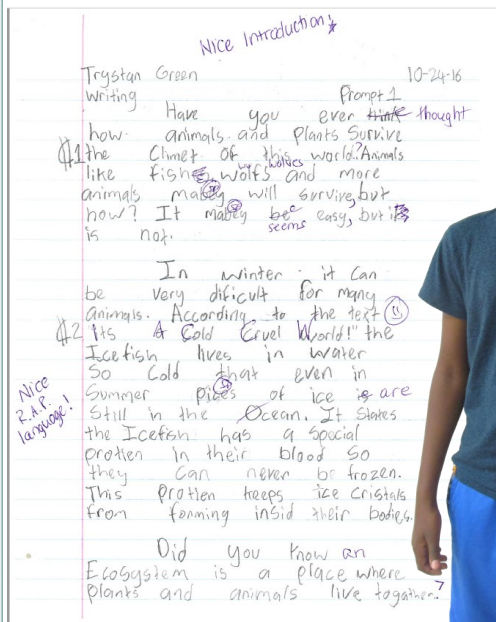 Nice Introduction!
Trystan Green 10-24-16
Writing Prompt 1
Have you ever think thought
how animals and plants survive
#1 the Climet of this world? Animals
like fish, wolfs wolves and more
animals mabey will survive, but
how? It mabey be seems easy, but it
is not.
In winter it can
be very dificult for many
animals. According to the text
#2 "Its A Cold Cruel World!" the
Icefish lives in water
So cold that even in
Nice R.A.P. language!
Summer pices of ice is are
Still in the Ocean. It States
the Icefish has a special
protien in their blood so
they can never be frozen.
This Protien keeps ice cristals
from forming insid their bodies.
Did you know an
Ecosystem is a place where
plants and animals live togather?